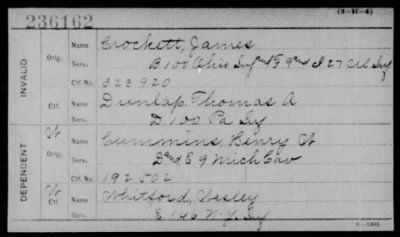 (3-II-4)
236162
INVALID
Orig.
Name Crockett, James
Serv. B 100 Ohio Inf and F 9 and I 27 Inf
Ctf. No. 323920
Ctf.
Name Dunlap, Thomas A
Serv. D 100 Pa Inf
DEPENDENT
W
Orig.
Name Cummins, Henry W
Serv. D and E 9 Mich Cav
Ctf. No. 192502
W
Ctf.
Name Whitford, Wesley
Serv. E 146 N.Y. Inf